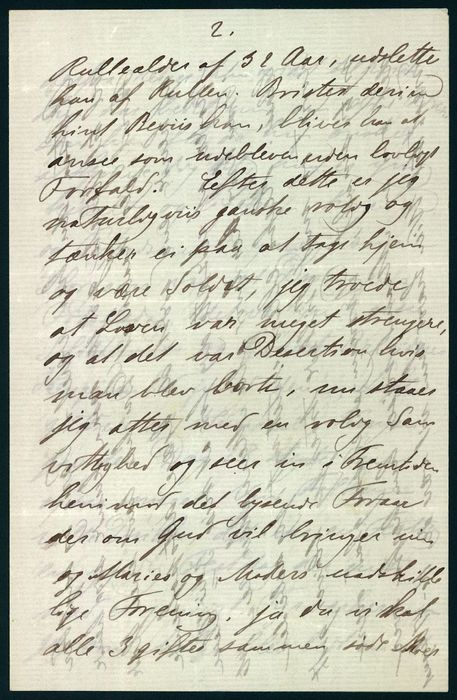 2.
Rullealder af 32 Aar, udslette
han af Rullen. Brister derimod
hint Beviis ham, blives han at
ansee som udebleven uden lovligt
Forfald. Efter dette er jeg
naturligviis ganske rolig og
tænker ei paa at tage hjem
og være Soldat, jeg troede
at Loven var meget strengere,
og at det var Desertion hvis
man blev borte, nu staaer
jeg atter med en rolig Sam
vittighed og seer ind i Fremtiden
henimod det lysende Foraar
der om Gud vil bringer min
og Maries og Moders uadskille
lige Forening, ja du vi skal
alle 3 giftes sammen søde